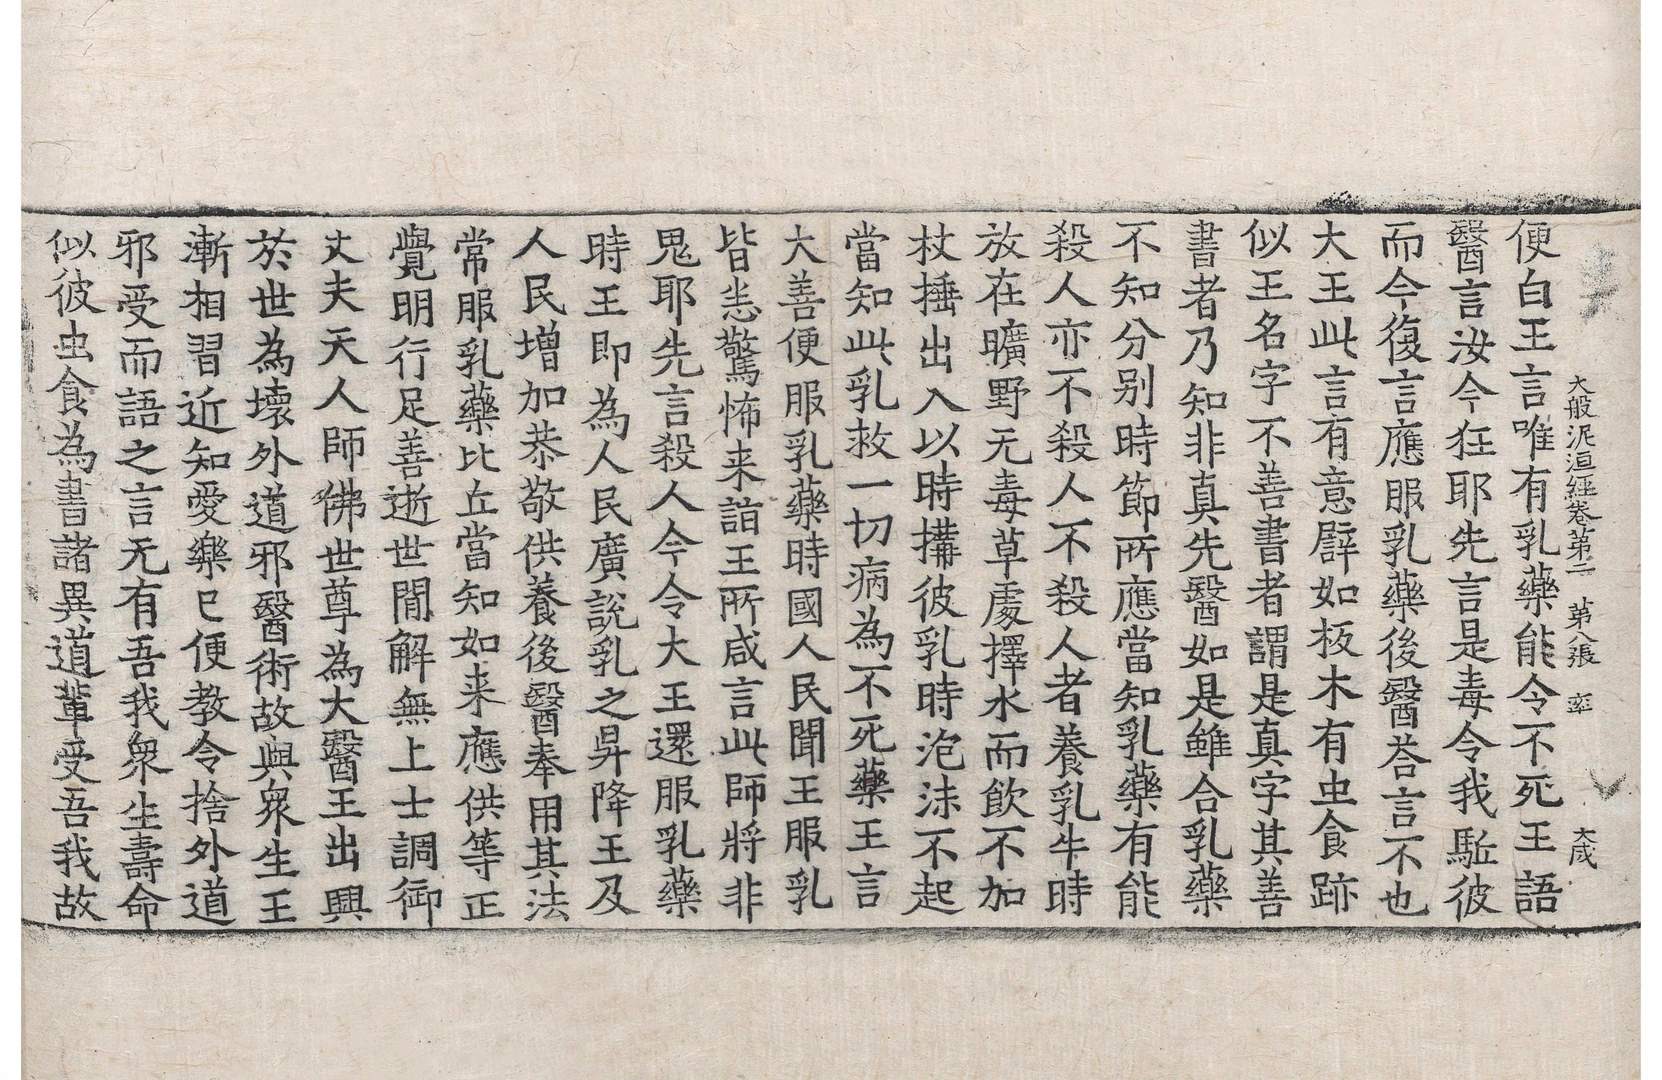 大般泥洹經卷第二 第八張 率 大成
便白王言唯有乳藥能令不死王語
醫言汝今狂耶先言是毒令我駈彼
而今復言應服乳藥後醫荅言不也
大王此言有意譬如板木有虫食跡
似王名字不善書者謂是真字其善
書者乃知非真先醫如是雖合乳藥
不知分别時節所應當知乳藥有能
殺人亦不殺人不殺人者養乳牛時
放在曠野无毒草處擇水而飲不加
杖捶出入以時搆彼乳時泡沫不起
當知此乳救一切病為不死藥王言
大善便服乳藥時國人民聞王服乳
皆恙驚怖来詣王所咸言此師將非
鬼耶先言殺人今令大王還服乳藥
時王即為人民廣說乳之昇降王及
人民增加恭敬供養後醫奉用其法
常服乳藥比丘當知如来應供等正
覺明行足善逝世閒解無上士調御
丈夫天人師佛世尊為大醫王出興
於世為壞外道邪醫術故與衆生王
漸相習近知愛樂已便教令捨外道
邪受而語之言无有吾我衆生壽命
似彼虫食為書諸異道軰受吾我故